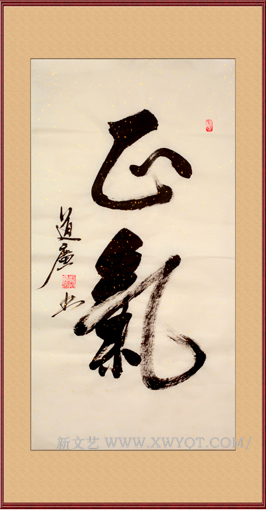 正氣
道廣书
新文艺 WWW.XWYQT.COM/